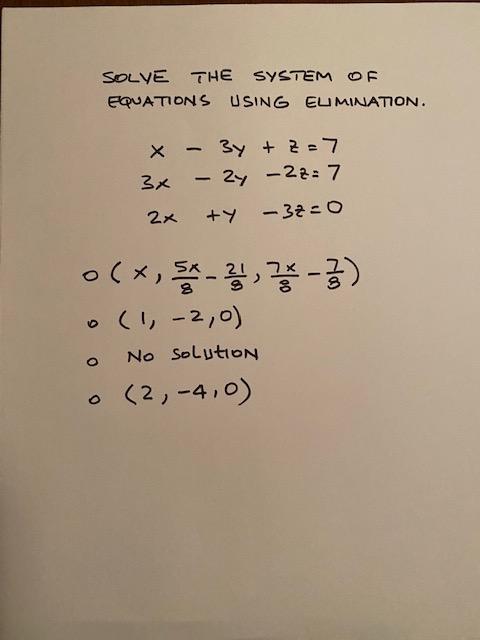 SOLVE THE SYSTEM OF
EQUATIONS USING ELIMINATION.
x - 3y + z = 7
3x - 2y - 2z = 7
2x + y - 3z = 0
o (x, 5x/8 - 21/8, 7x/8 - 7/8)
o (1, -2, 0)
o NO SOLUTION
o (2, -4, 0)